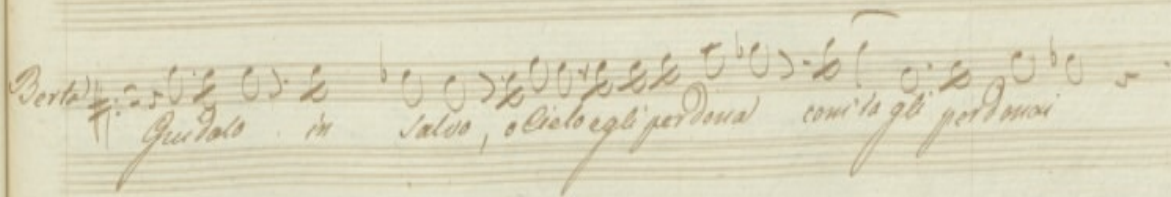 Berta
Guidalo in salvo, o Cielo egli perdona com'io gli perdonai